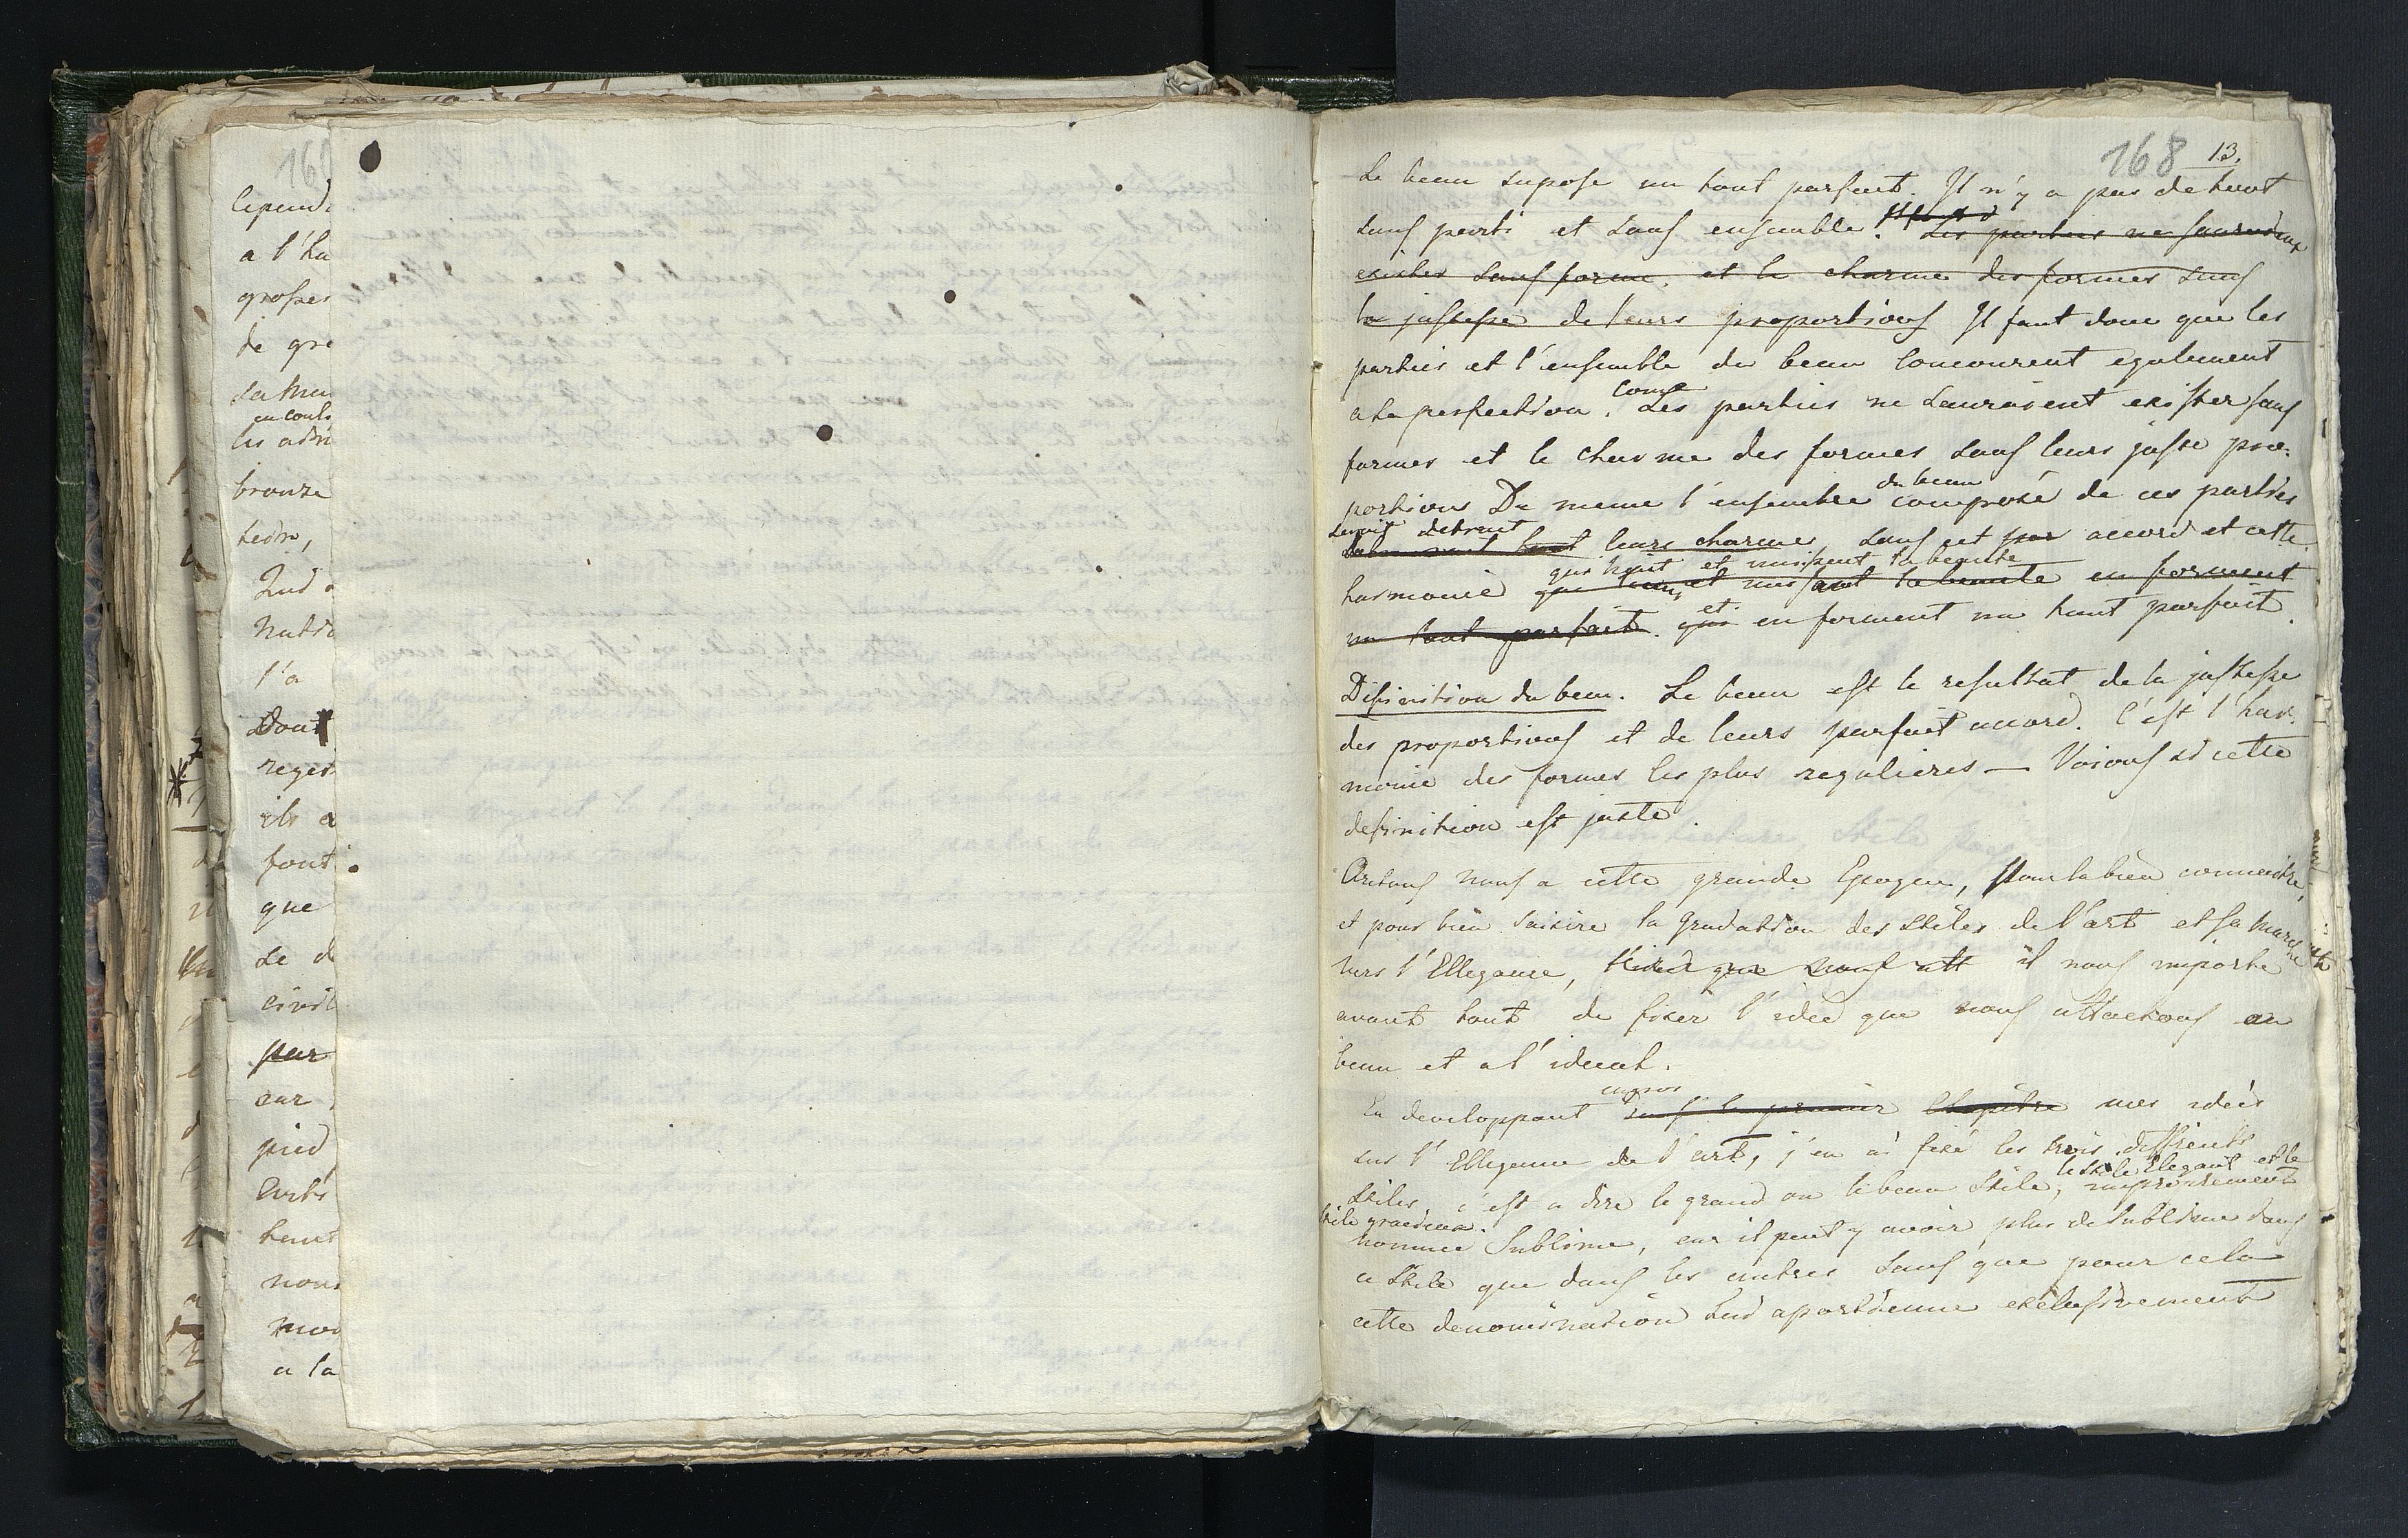 168
Cepend
a l'ha
grosses
de gre
en coul
les adm
bronze
tedre,
Lui
l'a
Dont
reger
ils a
font
que
se d
civil
par
car
pied
Arts
tout
nous
mod
a la
168 13.
Le beau supose un tout parfait. Il n'y a pas de tout
sans parti et sans ensemble. Les parties ne sauroient
exister sans forme, et le charme des formes sans
la justesse de leurs proportions Il faut donc que les
parties et l'ensemble du beau concourent egalement
a la perfection. Come Les parties ne sauroient exister sans
formes et le charme des formes sans leurs juste pro-
portions De meme l'ensemble du beau composé de ces parties
seroit detruit leurs charme, sans cet par accord et cette
qui unit et nuissent la beauté
harmonie en forment
un tout parfait. qui et en forment un tout parfait.
Difinition du beau. Le beau est le resultat de la justesse
des proportions et de leurs parfait accord. C'est l'har-
monie des formes les plus regulieres — Voions si cette
definition est juste.
Aretons nous a cette grande Epoque, Pour la bien connaitre,
et pour bien saisire la gradation des stiles de l'art et sa marche
vers l'Ellegance, il nous importe
avant tout de fixer l'idée que nous attachons au
beau et a l'ideal.
En developpant en gros dans le premier Chapitre mes idées
sur l'Ellegance de l'art, j'en ai fixé les trois differents
stiles, c'est a dire le grand ou le beau Stile, le stile Elegant et le
stile gracieux. improprement
nommee Sublime, car il peut y avoir plus de Sublime dans
ce Stile que dans les autres sans que pour cela
cette denomination lui apartienne exclusivement